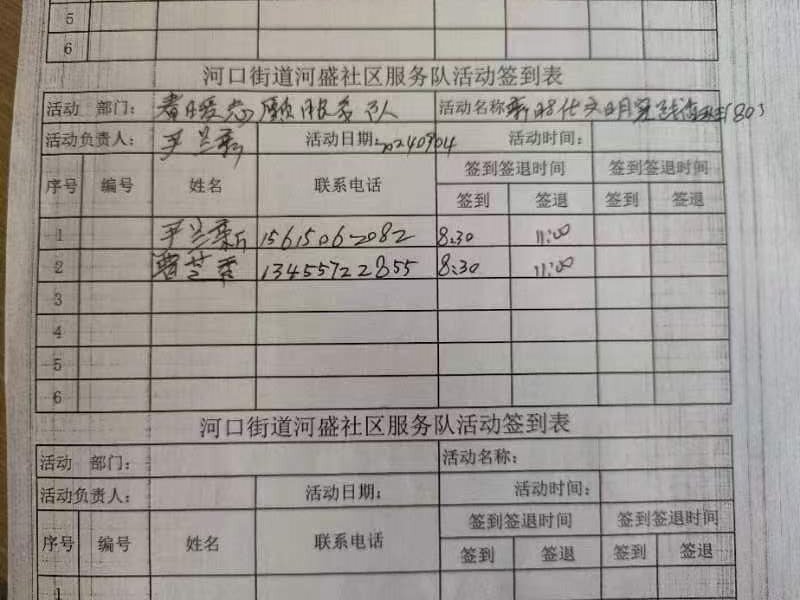 5
6
河口街道河盛社区服务队活动签到表
活动 部门： 春暖志愿服务队 活动名称 新时代文明实践
活动负责人： 兰新 活动日期： 20240904 活动时间：
序号 编号 姓名 联系电话 签到签退时间 签到签退时间
签到 签退 签到 签退
1 兰新 15615062082 8:30 11:00
2 曹芝香 13455722855 8:30 11:00
3
4
5
6
河口街道河盛社区服务队活动签到表
活动 部门： 活动名称：
活动负责人： 活动日期： 活动时间：
序号 编号 姓名 联系电话 签到签退时间 签到签退时间
签到 签退 签到 签退
1